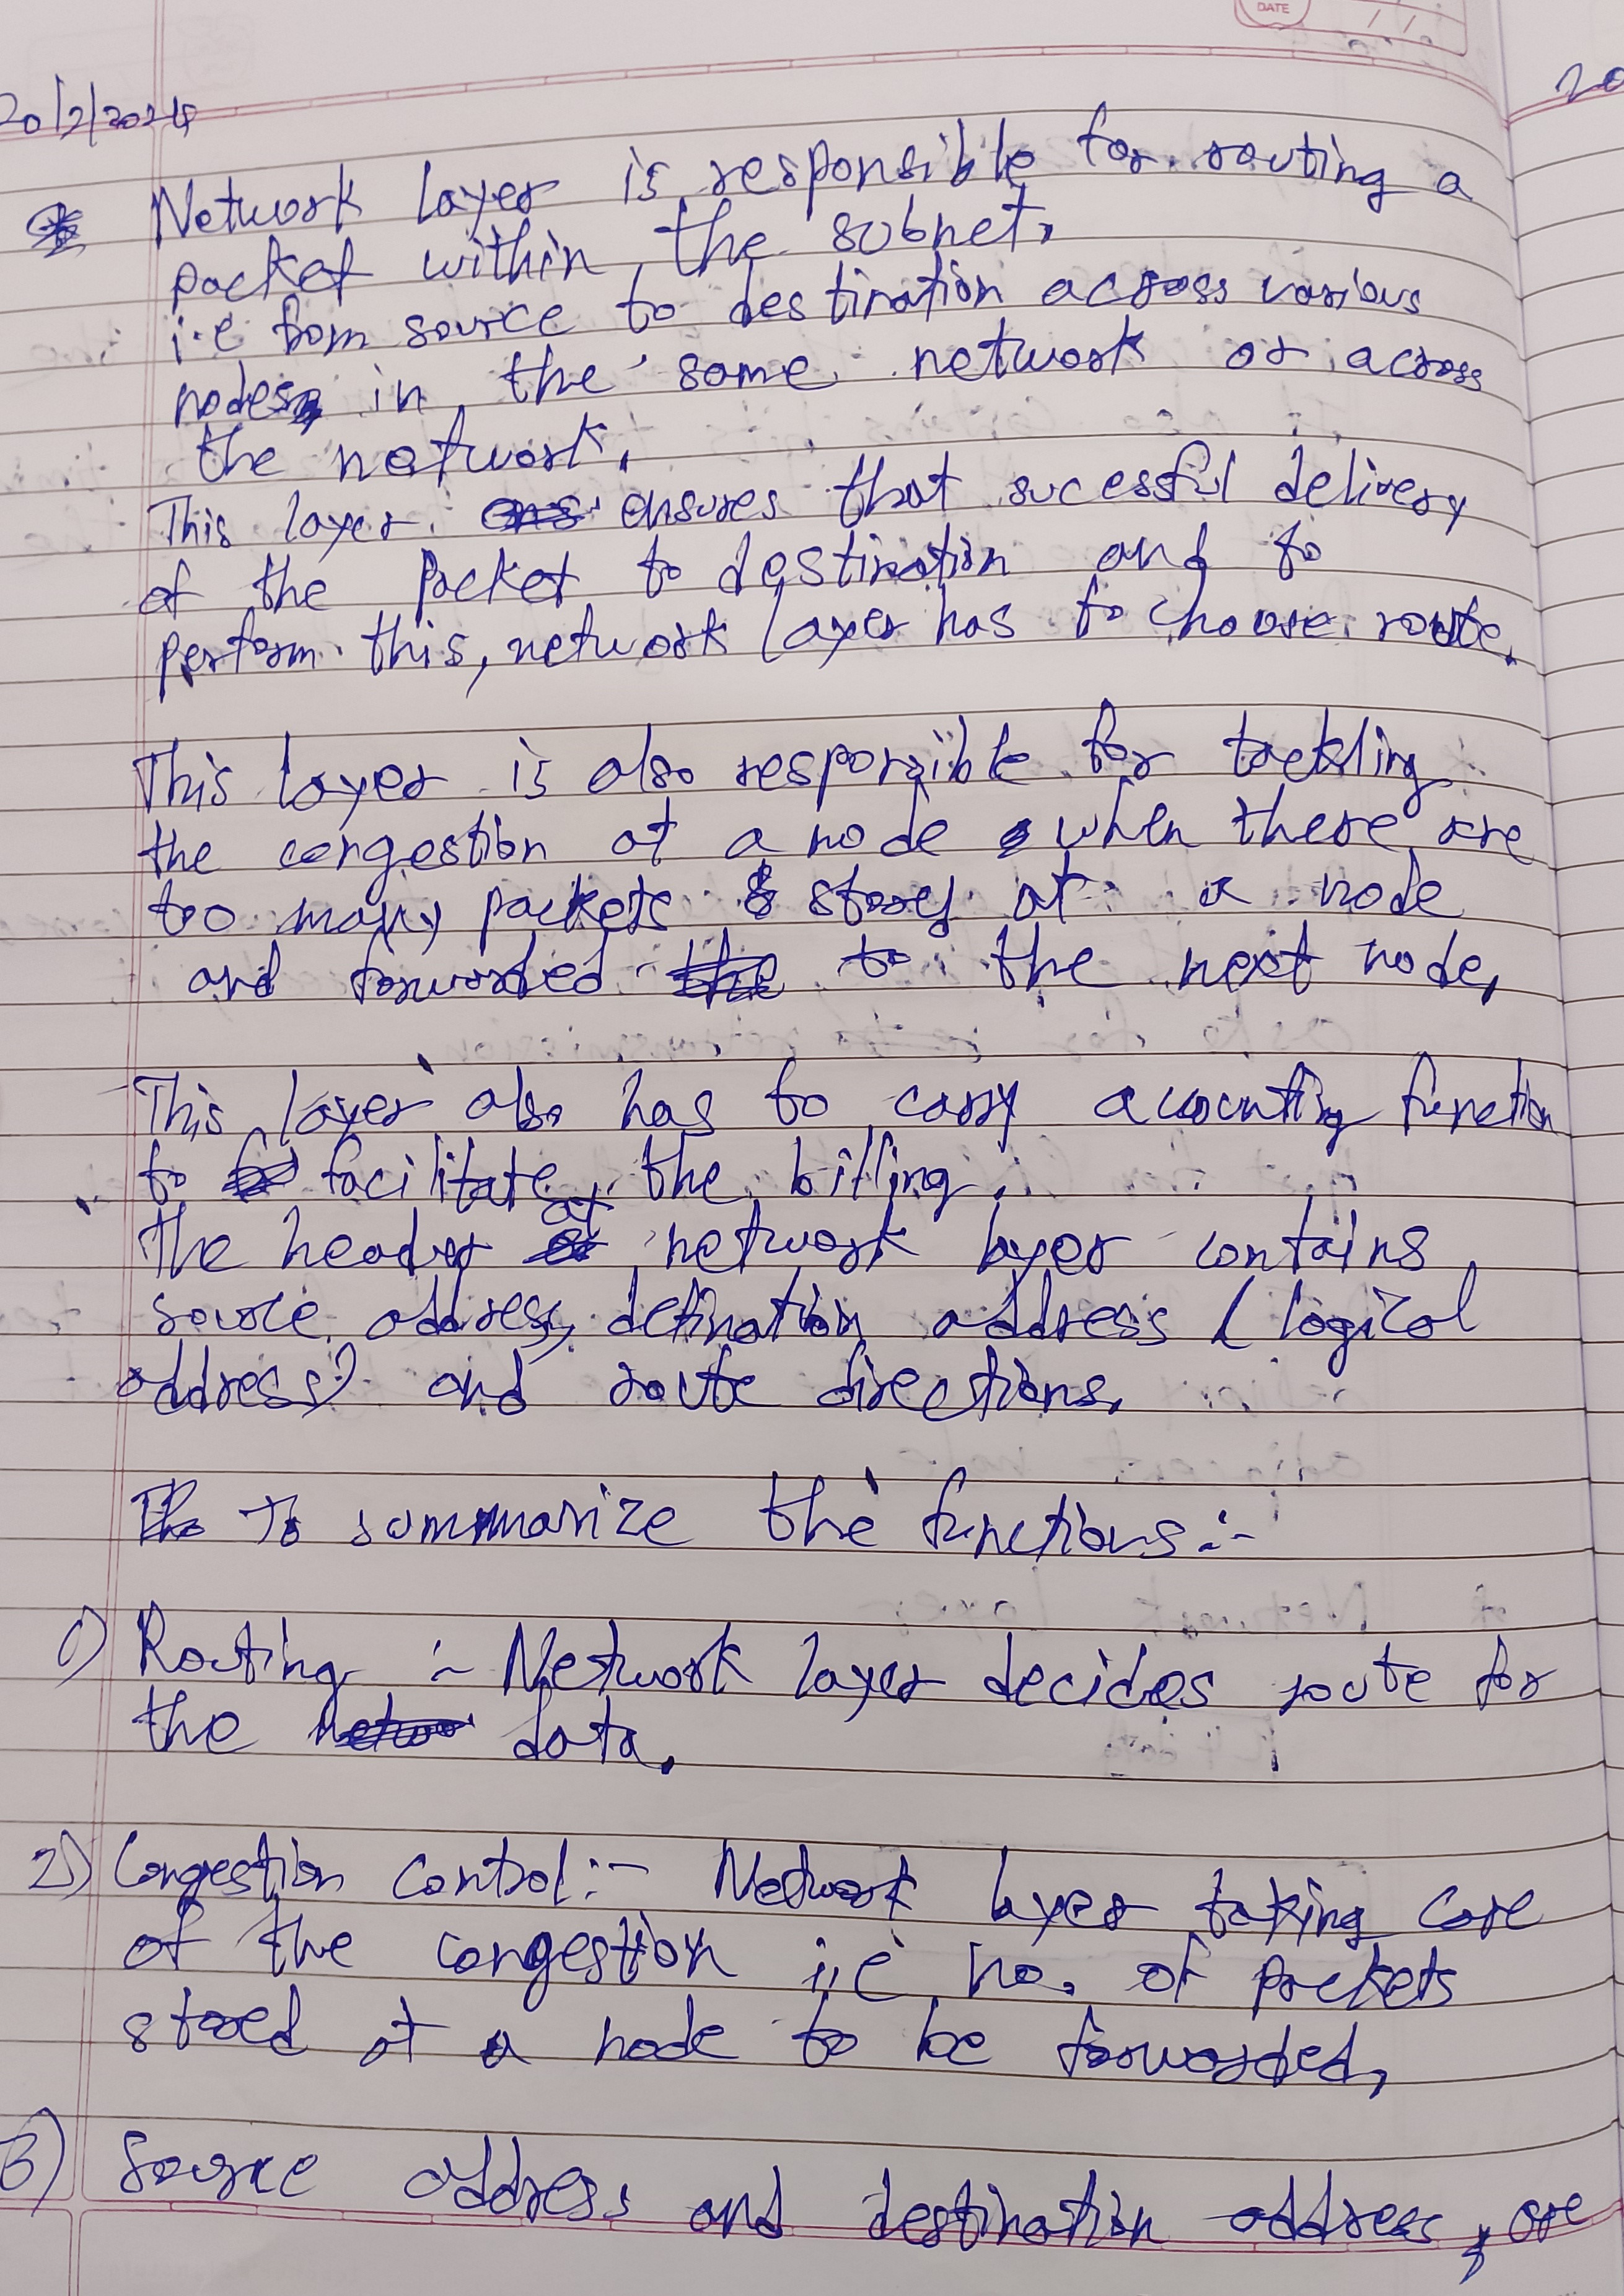 DATE
/ /
20/2/2024
20
Network layer is responsible for routing a
packet within the subnet,
i.e from source to destination across various
nodes in the same network or across
the network.
This layer ensures that sucessful delivery
of the packet to destination and to
perform this, network layer has to choose route.
This layer is also responsible for tackling
the congestion at a node when there are
too many packets stored at a node
and forwarded to the next node,
This layer also has to carry accounting function
to facilitate the billing.
The header at network layer contains
source address, detination address (logical
address) and route directions.
To summarize the functions:-
1) Routing :- Network layer decides route for
the data.
2) Congestion Control:- Network layer taking care
of the congestion i.e no. of packets
stored at a node to be forwarded,
3) Source address and destination address, are